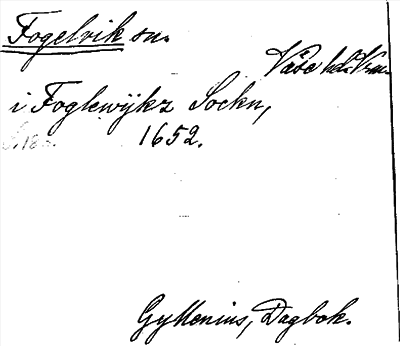 Fogelvik sn.
Väse hd. Vrm.
i Foglewijkz Sockn,
1652.
Gyllenius, Dagbok.